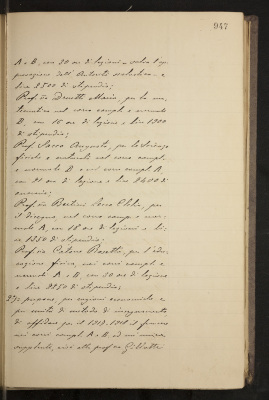 947
A e B, con 20 ore di lezioni - salva l'ap-
provazione dell'Autorità scolastica - e
lire 2500 di stipendio;
Prof.ssa Maria, per la ma-
tematica nel corso compl. e normale
B, con 15 ore di lezione e lire 1800
di stipendio;
Prof. Sacco Augusto, per le scienze
fisiche e naturali nel corso compl.
e normale B e nei corsi compl. A,
con 21 ore di lezione e lire 2400 di
Prof.ssa Bertini, per
il disegno, nel corso compl. e nor-
male A, con 16 ore di lezioni e li-
re 1350 di stipendio;
Prof.ssa Rosetta, per l'edu-
cazione fisica, nei corsi compl. e
normali A e B, con 20 ore di lezione
e lire 2250 di stipendio;
2°) propone, per ragioni economiche e
per unità di metodo di insegnamento
di affidare per il 1917-1918 il francese
nei corsi compl. A e B ad un'unica
supplente, cioè alla prof.ssa